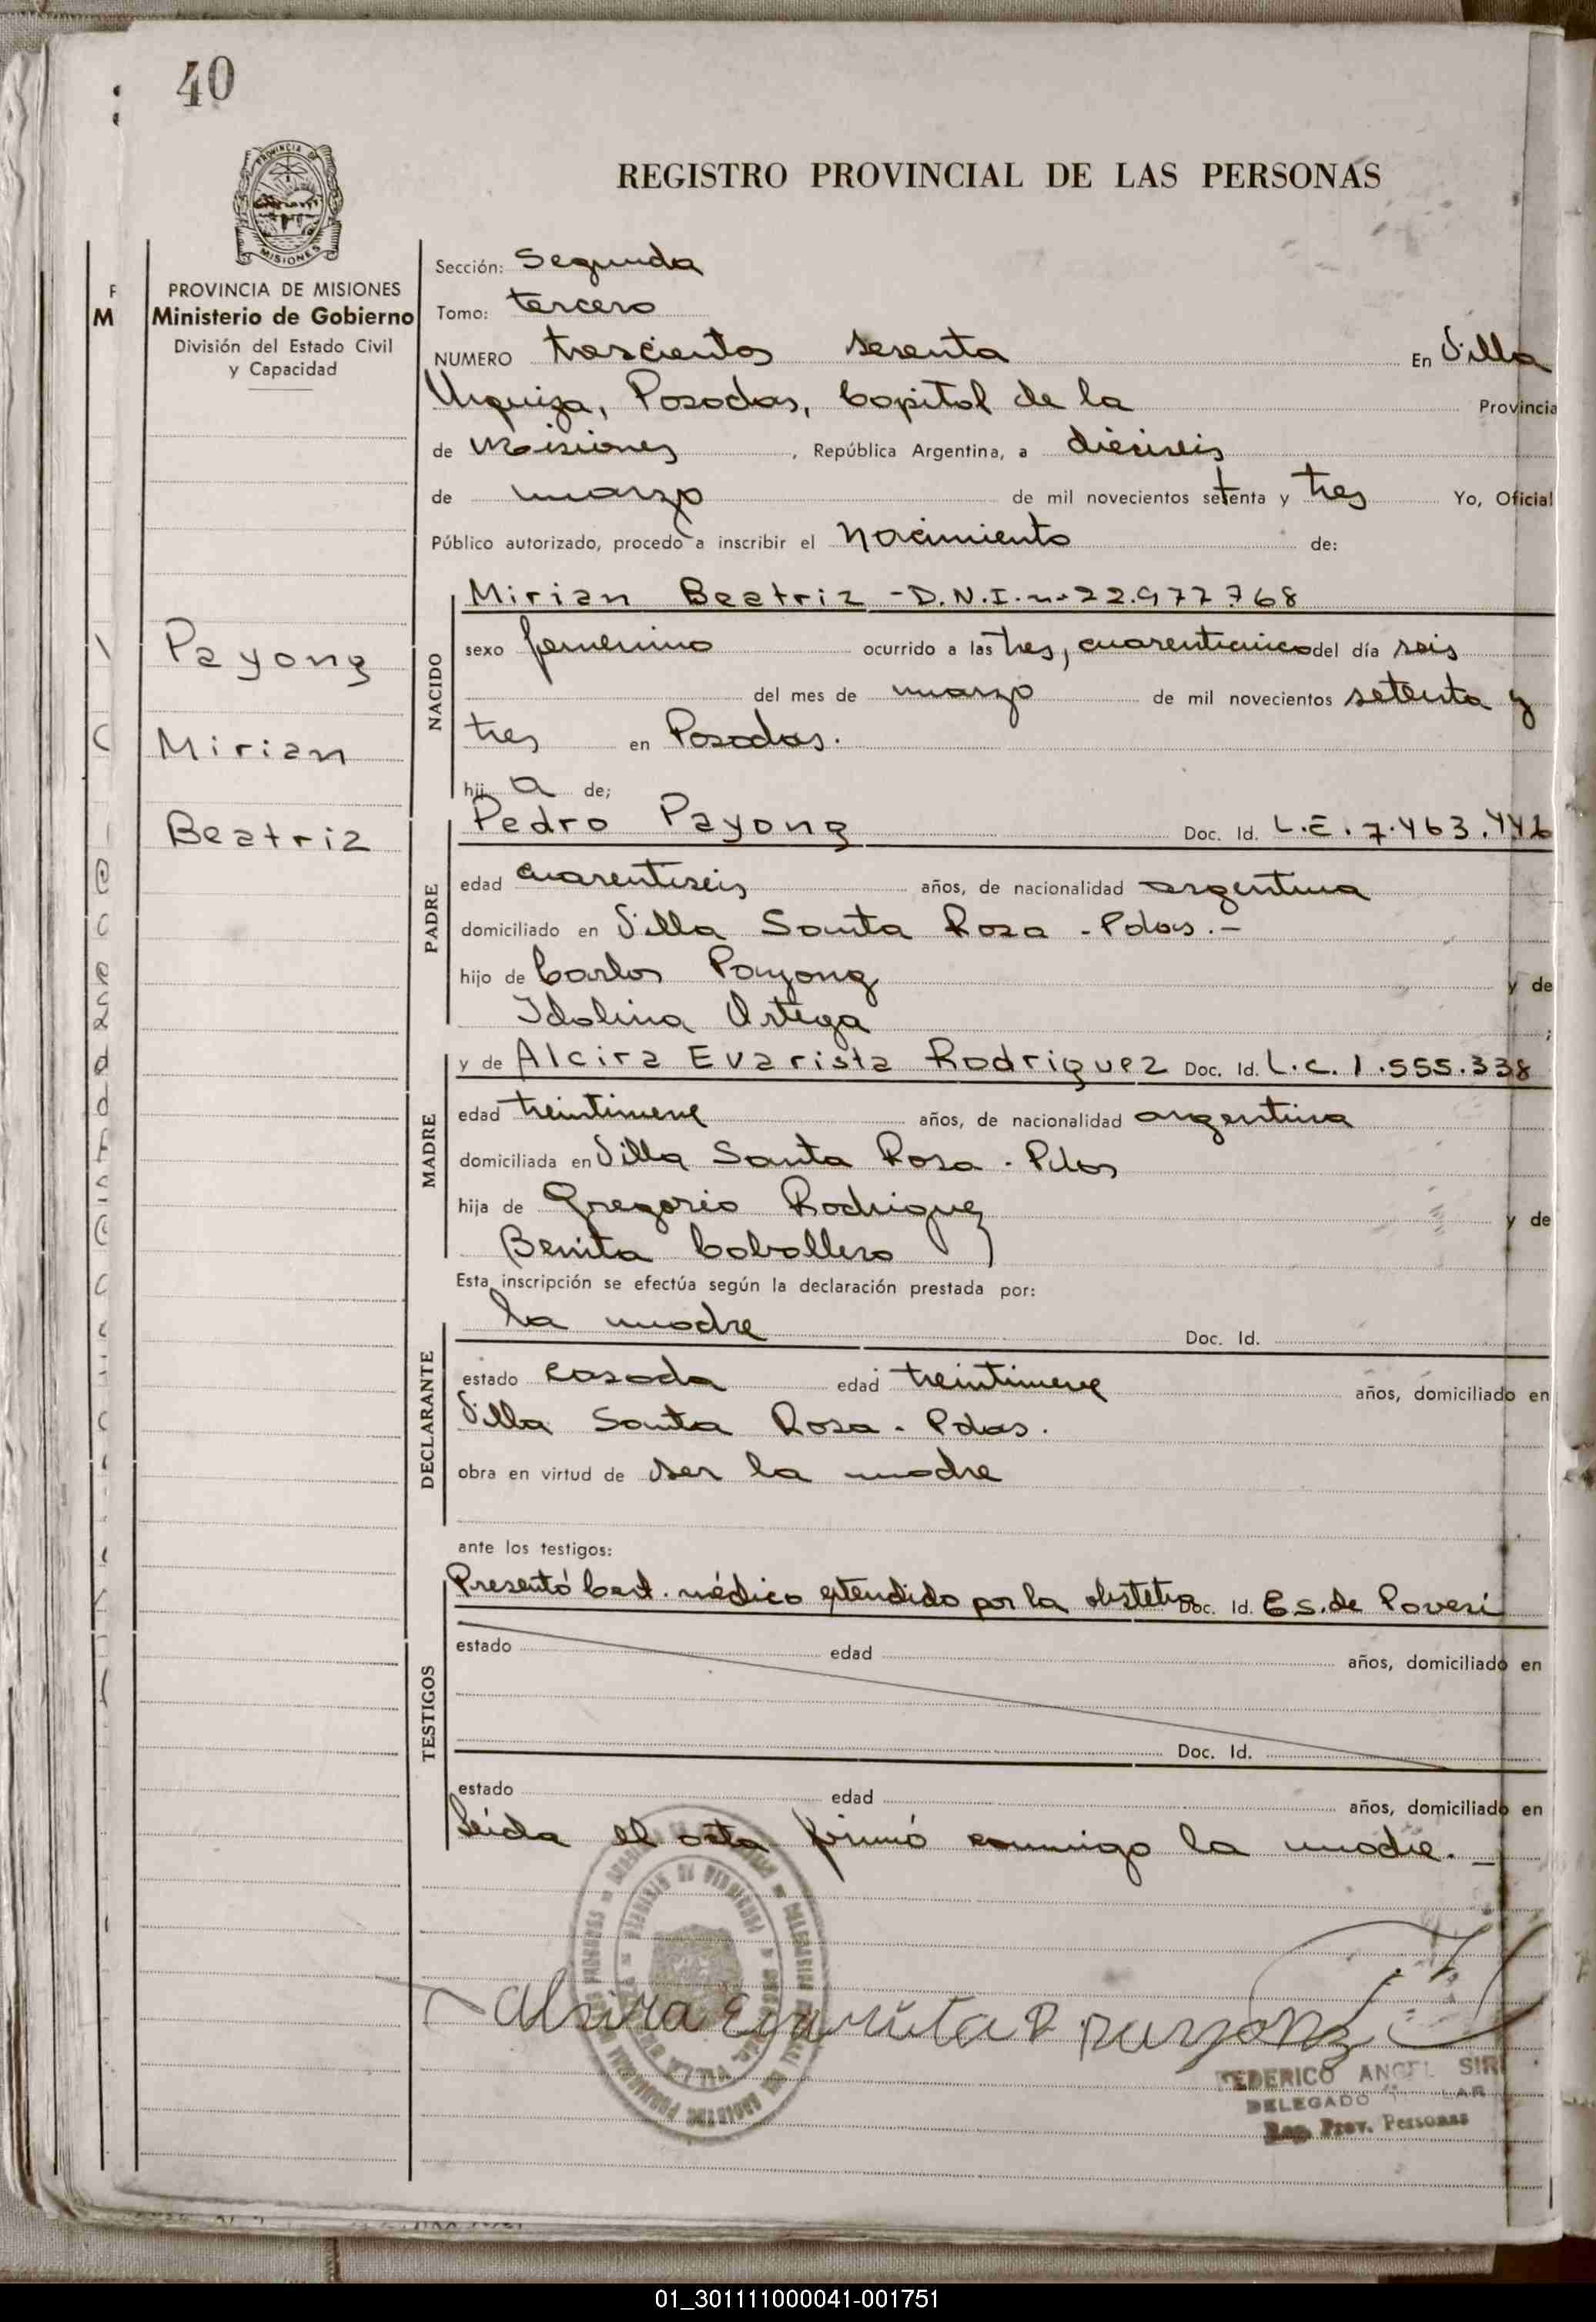 40
PROVINCIA DE
MISIONES
REGISTRO PROVINCIAL DE LAS PERSONAS
PROVINCIA DE MISIONES
Ministerio de Gobierno
División del Estado Civil
y Capacidad
Payong
Mirian
Beatriz
Sección: Segunda
Tomo: tercero
NUMERO trescientos sesenta En Villa
Urquiza, Posadas, Capital de la Provincia
de Misiones, República Argentina, a dieciseis
de marzo de mil novecientos setenta y tres Yo, Oficial
Público autorizado, procedo a inscribir el nacimiento de:
NACIDO
Mirian Beatriz - D.N.I. nº 22.977.768
sexo femenino ocurrido a las tres, cuarenticinco del día seis
del mes de marzo de mil novecientos setenta y
tres en Posadas.
hij a de;
PADRE
Pedro Payong Doc. Id. L.E. 7.463.446
edad cuarentiseis años, de nacionalidad argentina
domiciliado en Villa Santa Rosa - Pdas. -
hijo de Carlos Payong y de
Idolina Ortega ;
MADRE
y de Alcira Evarista Rodriguez Doc. Id. L.C. 1.555.338
edad treintinueve años, de nacionalidad argentina
domiciliada en Villa Santa Rosa - Pdas
hija de Gregorio Rodriguez y de
Benita Caballero
Esta inscripción se efectúa según la declaración prestada por:
DECLARANTE
la madre Doc. Id.
estado casada edad treintinueve años, domiciliado en
Villa Santa Rosa - Pdas.
obra en virtud de ser la madre
ante los testigos:
TESTIGOS
Presentó Cert. médico extendido por la obstetra Doc. Id. E.S. de Poversi
estado edad años, domiciliado en
Doc. Id.
estado edad años, domiciliado en
Leída el acta firmó conmigo la madre. -
Alsira Evarista R. Payong
FEDERICO ANGEL SIRI
DELEGADO
Reg. Prov. Personas
01_301111000041-001751